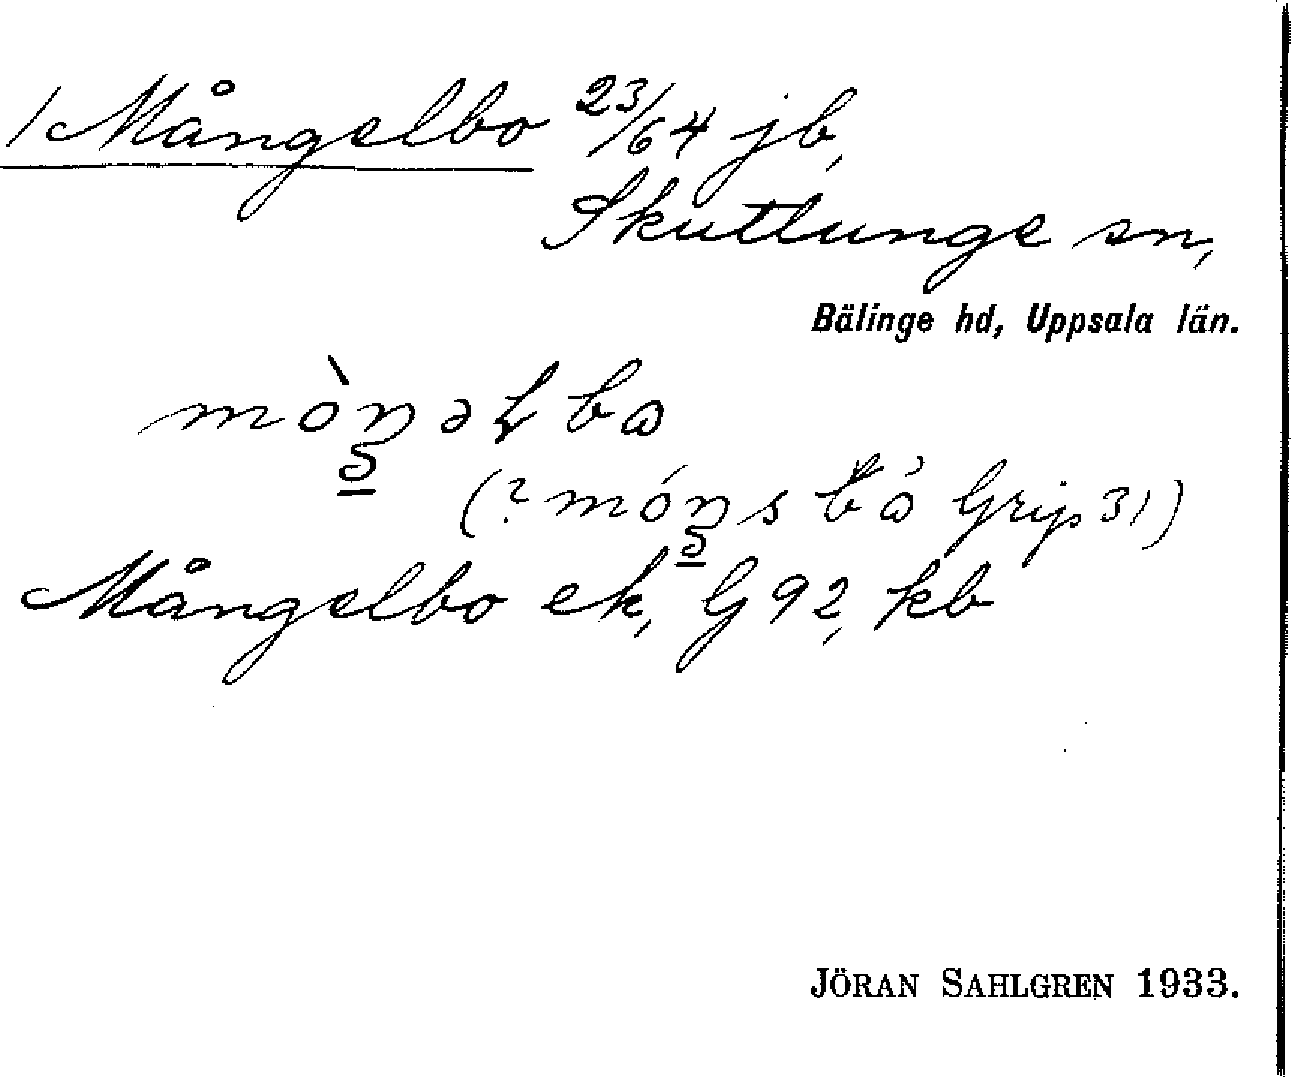 /Mångelbo 23/64 jb,
Skuttunge sn,
Bälinge hd, Uppsala län.
mòŋəɫbɷ
(? móŋs bɷ́ Grip 31)
Mångelbo ek, G92, kb
JÖRAN SAHLGREN 1933.